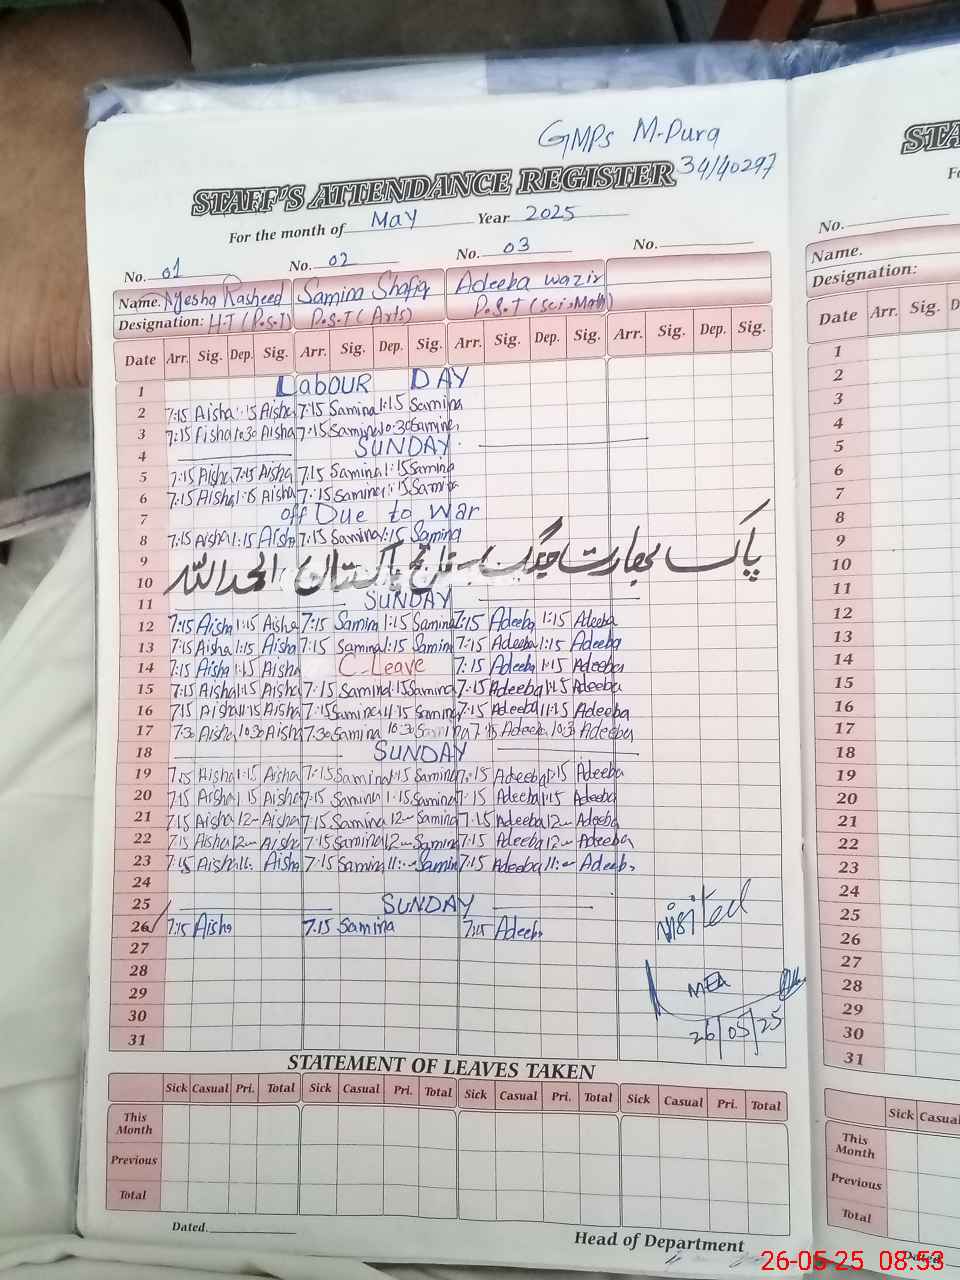 GMPs M-Pura
34/40297
STAFF'S ATTENDANCE REGISTER
For the month of May Year 2025
No. 01 No. 02 No. 03 No.
Name. Ayesha Rasheed Samina Shafiq Adeeba wazir
Designation: H-T (P.S.T) P.S.T (Arts) P.S.T (Sci-Math)
Date Arr. Sig. Dep. Sig. Arr. Sig. Dep. Sig. Arr. Sig. Dep. Sig. Arr. Sig. Dep. Sig.
1 Labour DAY
2 7:15 Aisha 1:15 Aisha 7:15 Samina 1:15 Samina
3 7:15 Aisha 10:30 Aisha 7:15 Samina 10:30 Samina
4 SUNDAY
5 7:15 Aisha 7:15 Aisha 7:15 Samina 1:15 Samina
6 7:15 Aisha 1:15 Aisha 7:15 Samina 1:15 Samina
7 off Due to War
8 7:15 Aisha 1:15 Aisha 7:15 Samina 1:15 Samina
9
10 پاک بھارت جنگ فاتح پاکستان الحمداللہ
11 SUNDAY
12 7:15 Aisha 1:15 Aisha 7:15 Samina 1:15 Samina 7:15 Adeeba 1:15 Adeeba
13 7:15 Aisha 1:15 Aisha 7:15 Samina 1:15 Samina 7:15 Adeeba 1:15 Adeeba
14 7:15 Aisha 1:15 Aisha C-Leave 7:15 Adeeba 1:15 Adeeba
15 7:15 Aisha 1:15 Aisha 7:15 Samina 1:15 Samina 7:15 Adeeba 1:15 Adeeba
16 7:15 Aisha 1:15 Aisha 7:15 Samina 1:15 Samina 7:15 Adeeba 1:15 Adeeba
17 7:30 Aisha 10:30 Aisha 7:30 Samina 10:30 Samina 7:15 Adeeba 10:30 Adeeba
18 SUNDAY
19 7:15 Aisha 1:15 Aisha 7:15 Samina 1:15 Samina 7:15 Adeeba 1:15 Adeeba
20 7:15 Aisha 1:15 Aisha 7:15 Samina 1:15 Samina 7:15 Adeeba 1:15 Adeeba
21 7:15 Aisha 12 Aisha 7:15 Samina 12 Samina 7:15 Adeeba 12 Adeeba
22 7:15 Aisha 12 Aisha 7:15 Samina 12 Samina 7:15 Adeeba 12 Adeeba
23 7:15 Aisha 11 Aisha 7:15 Samina 11 Samina 7:15 Adeeba 11 Adeeba
24
25 SUNDAY
26 7:15 Aisha 7:15 Samina 7:15 Adeeba
27
28
29
30
31
Visited
MEA
26/05/25
STATEMENT OF LEAVES TAKEN
Sick Casual Pri. Total Sick Casual Pri. Total Sick Casual Pri. Total Sick Casual Pri. Total
This Month
Previous
Total
Dated.
Head of Department
No.
Name.
Designation:
Date Arr. Sig.
1
2
3
4
5
6
7
8
9
10
11
12
13
14
15
16
17
18
19
20
21
22
23
24
25
26
27
28
29
30
31
Sick Casual
This Month
Previous
Total
Dated
26-05-25 08:53